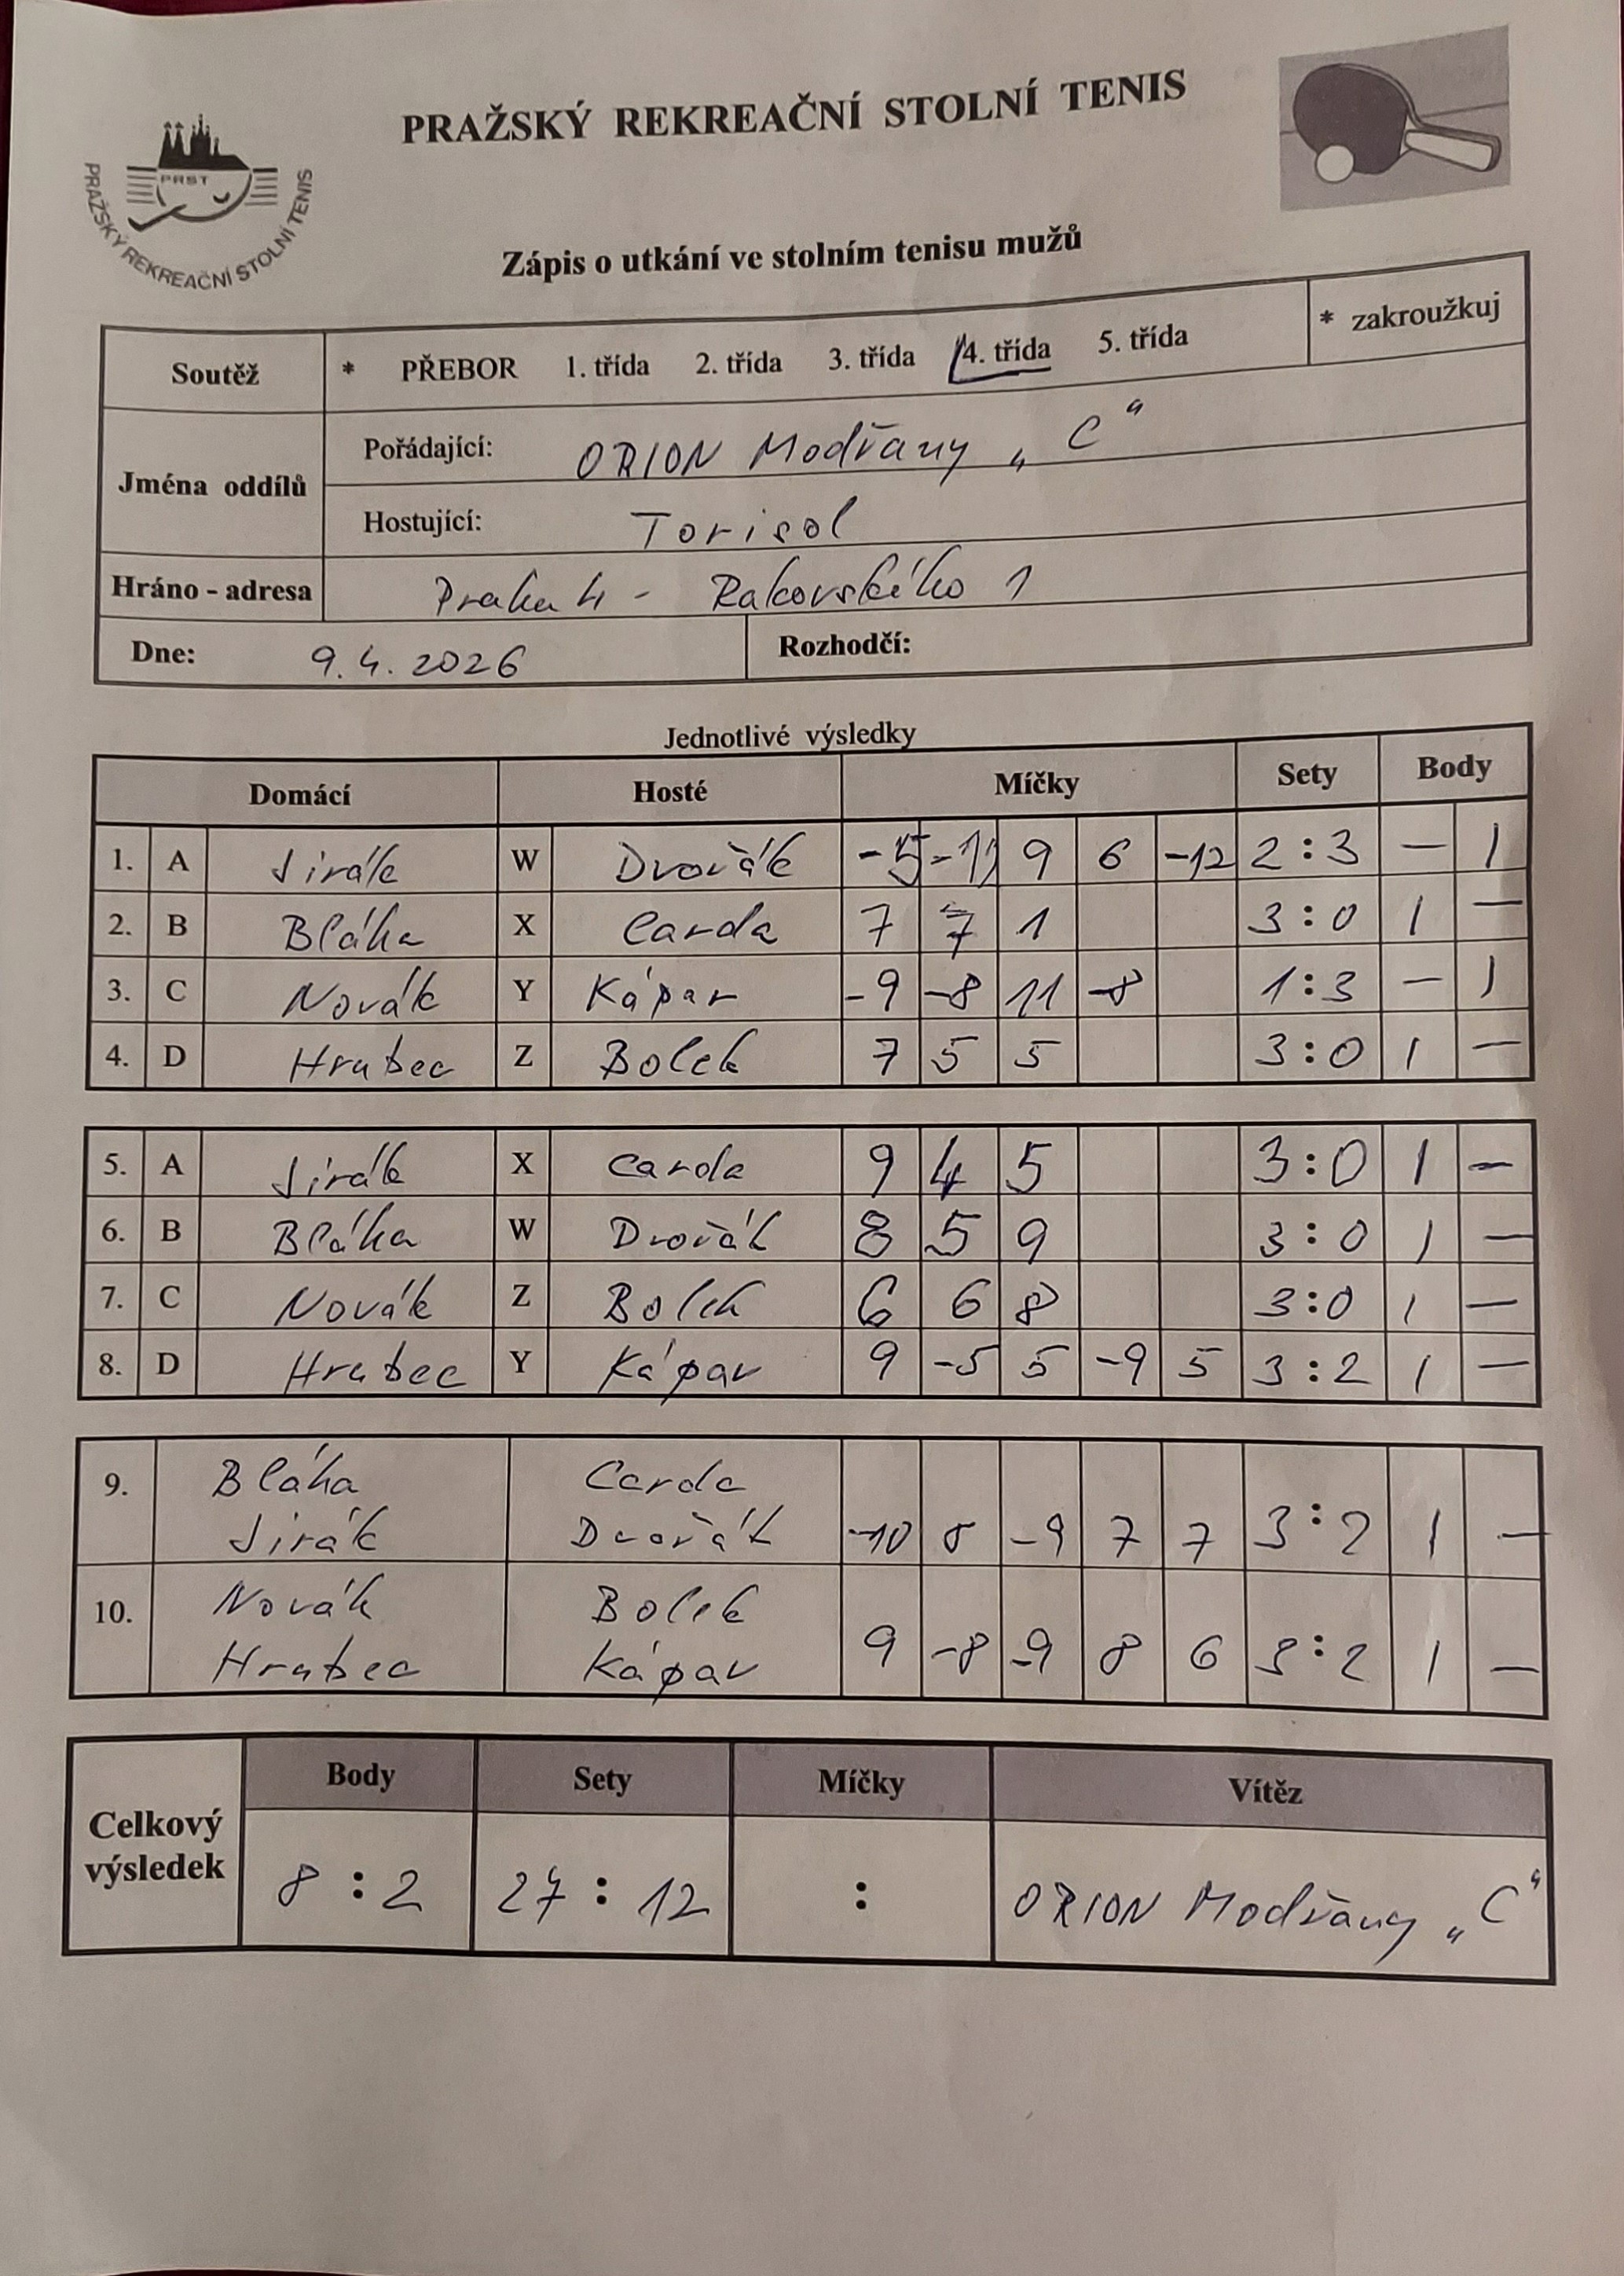 PRAŽSKÝ REKREAČNÍ STOLNÍ TENIS
PRST
PRAŽSKÝ REKREAČNÍ STOLNÍ TENIS
Zápis o utkání ve stolním tenisu mužů
Soutěž * PŘEBOR 1. třída 2. třída 3. třída 4. třída 5. třída * zakroužkuj
Jména oddílů
Pořádající: ORION Modřany „C"
Hostující: Torisol
Hráno - adresa Praha 4 - Rakovského 1
Dne: 9.4.2026 Rozhodčí:
Jednotlivé výsledky
Domácí Hosté Míčky Sety Body
1. A Jirák W Dvořák -5 -11 9 6 -12 2:3 — 1
2. B Bláha X Carda 7 7 1 3:0 1 —
3. C Novák Y Kápar -9 -8 11 -8 1:3 — 1
4. D Hrubec Z Bolek 7 5 5 3:0 1 —
5. A Jirák X Carda 9 4 5 3:0 1 —
6. B Bláha W Dvořák 8 5 9 3:0 1 —
7. C Novák Z Bolek 6 6 8 3:0 1 —
8. D Hrubec Y Kápar 9 -5 5 -9 5 3:2 1 —
9. Bláha Carda
Jirák Dvořák -10 8 -9 7 7 3:2 1 —
10. Novák Bolek
Hrubec Kápar 9 -8 -9 8 6 3:2 1 —
Celkový výsledek
Body Sety Míčky Vítěz
8 : 2 27 : 12 : ORION Modřany „C"